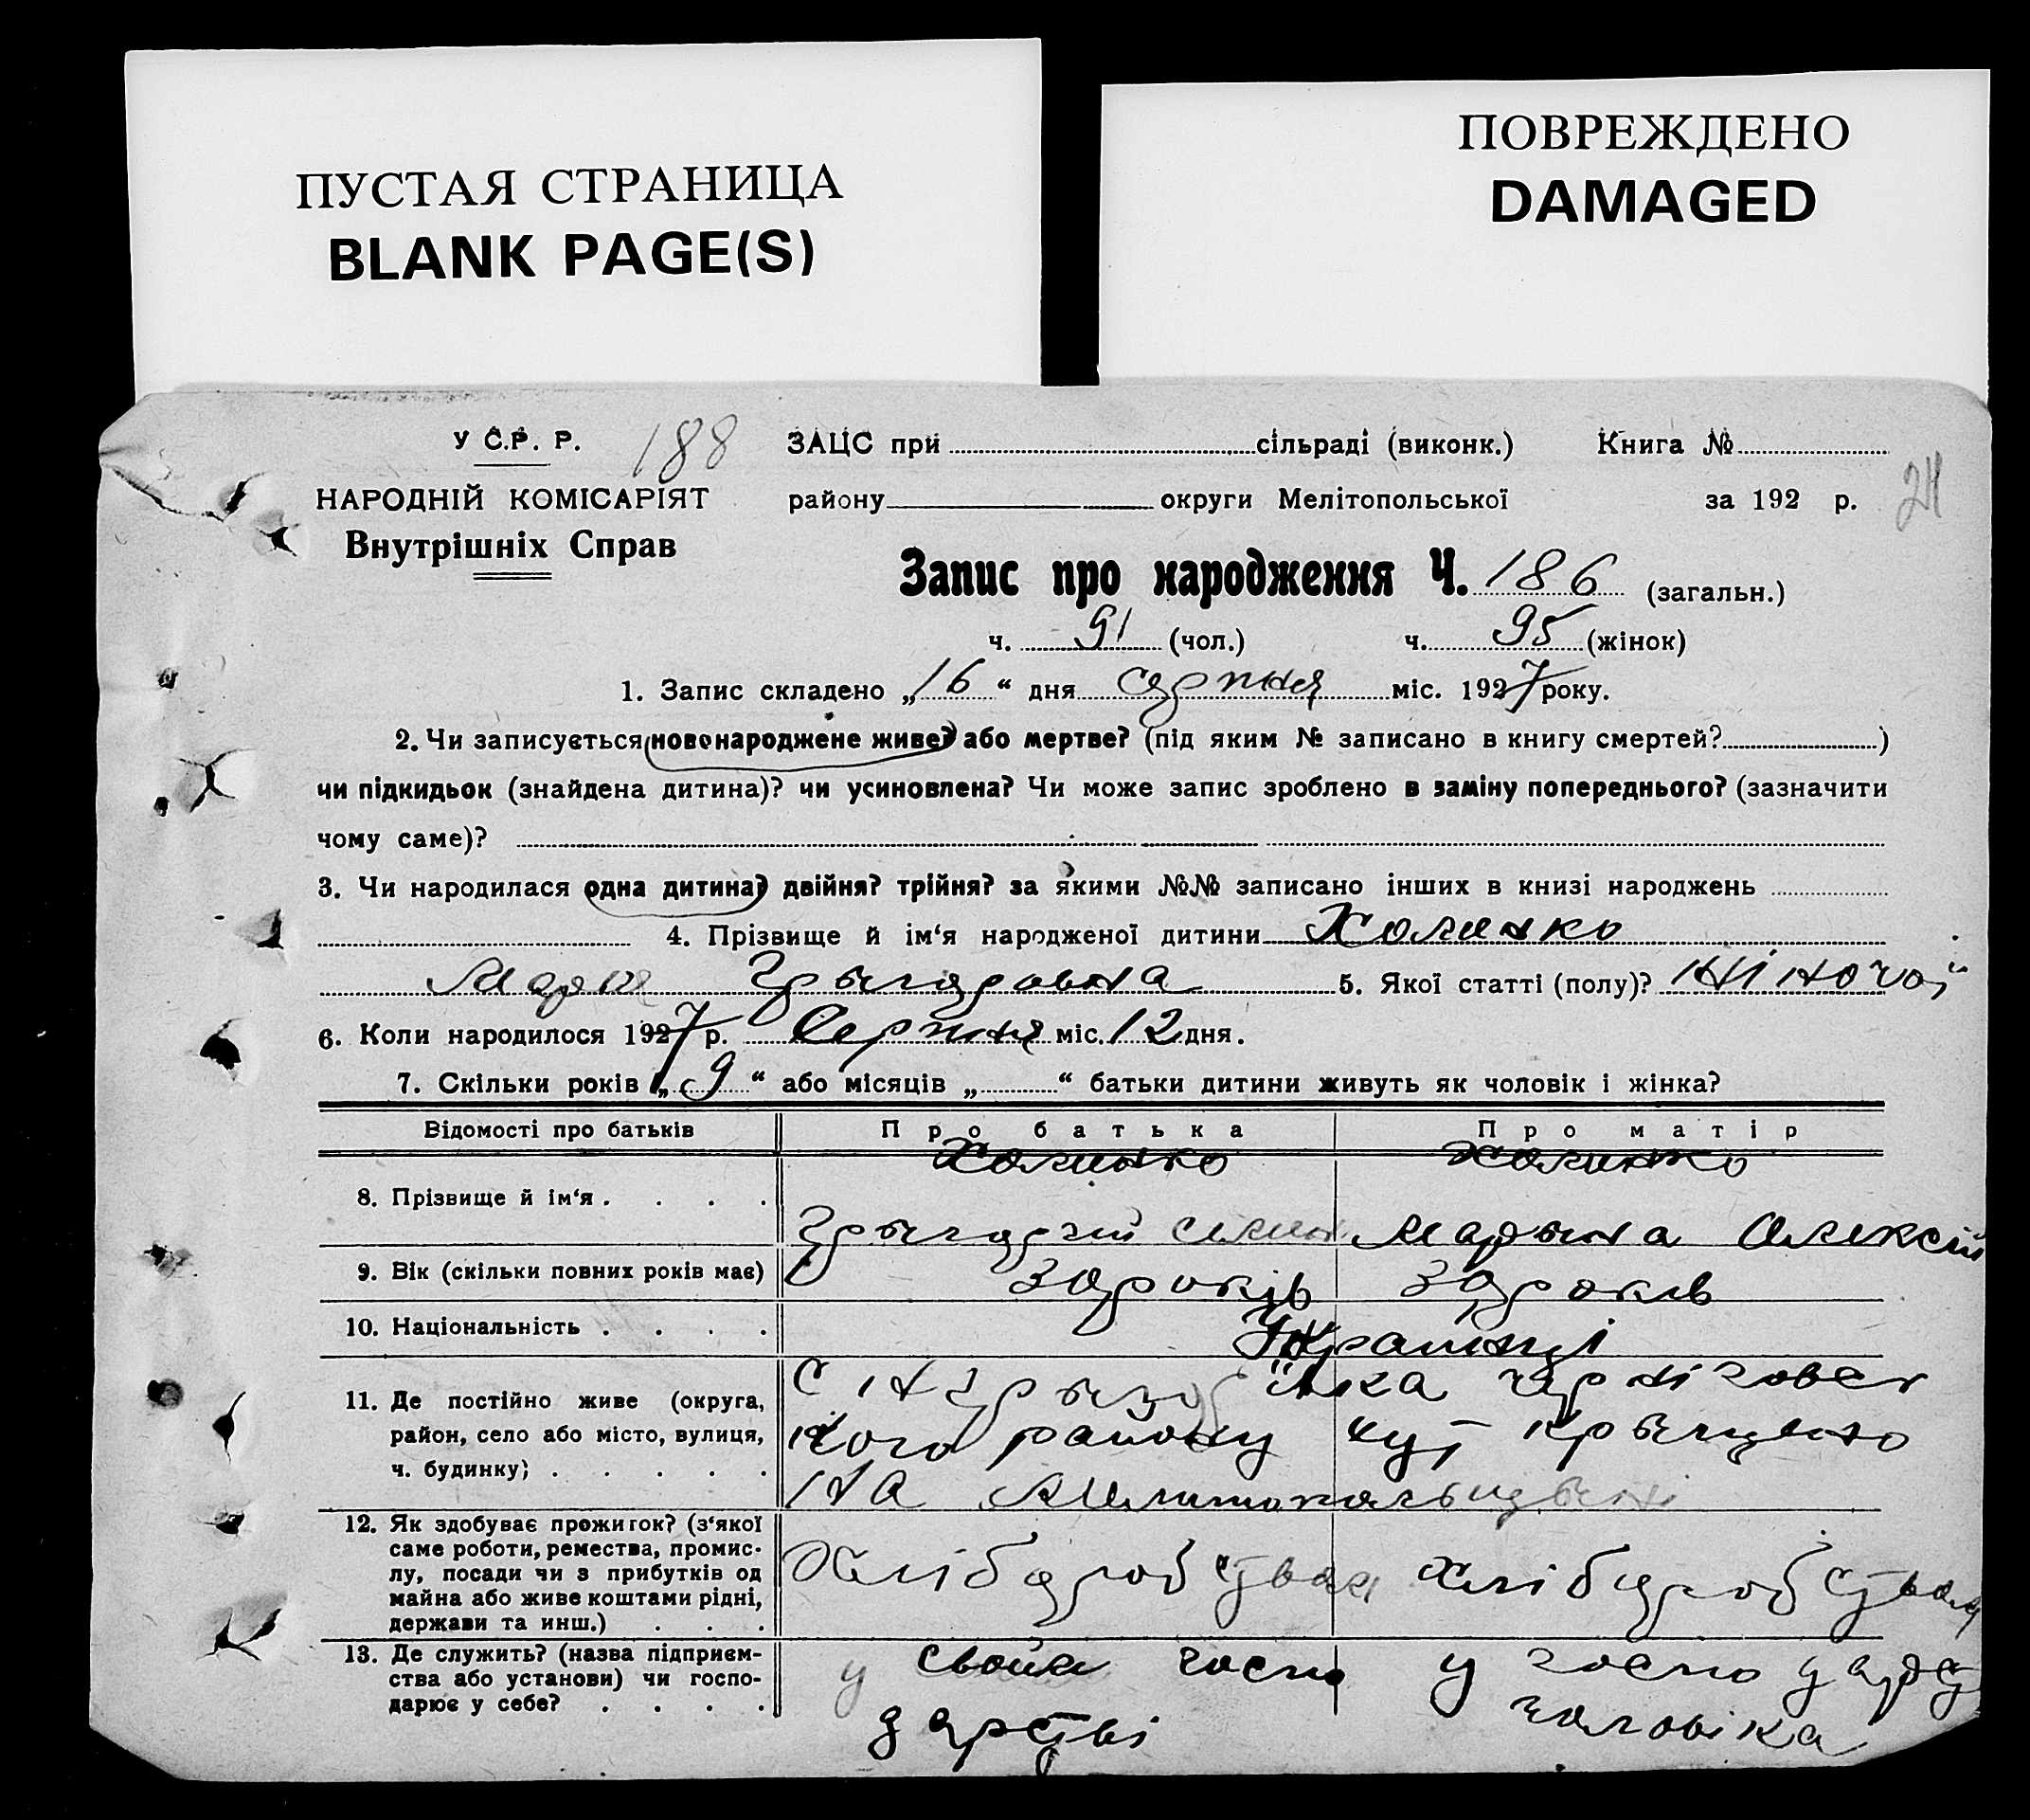 ПУСТАЯ СТРАНИЦА
BLANK PAGE(S)
ПОВРЕЖДЕНО
DAMAGED
У С.Р. Р. 188 ЗАЦС при сільраді (виконк.) Книга №
НАРОДНІЙ КОМІСАРІЯТ району округи Мелітопольської за 192 р. 24
Внутрішніх Справ
Запис про народження Ч. 186 (загальн.)
ч. 91 (чол.) ч. 95 (жінок)
1. Запис складено „16“ дня серпня міс. 1927 року.
2. Чи записується новонароджене живе? або мертве? (під яким № записано в книгу смертей? )
чи підкидьок (знайдена дитина)? чи усиновлена? Чи може запис зроблено в заміну попереднього? (зазначити
чому саме)?
3. Чи народилася одна дитина? двійня? трійня? за якими №№ записано інших в книзі народжень
4. Прізвище й ім‘я народженої дитини Холинко
Марія 5. Якої статті (полу)? Жіночої
6. Коли народилося 1927 р. Серпня міс. 12 дня.
7. Скільки років „9“ або місяців „ “ батьки дитини живуть як чоловік і жінка?
Відомості про батьків Про батька Про матір
Холинко Холинко
8. Прізвище й ім‘я . . . .
Марына Олексій
9. Вік (скільки повних років має) років років
10. Національність . . . . Українці
11. Де постійно живе (округа,
район, село або місто, вулиця,
ч. будинку) . . . . .
кого району
на
12. Як здобуває прожиток? (з‘якої
саме роботи, ремества, промис-
лу, посади чи з прибутків од
майна або живе коштами рідні,
держави та инш.) . . .
Хліборобством хліборобством
13. Де служить? (назва підприєм-
ства або установи) чи госпо-
дарює у себе? . . . .
у своим госпо
дарстві
у
чоловіка